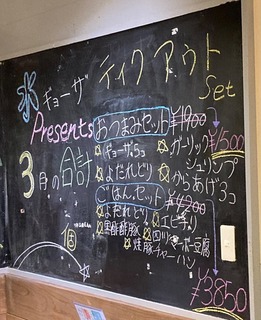 ギョーザ テイクアウト
Set
Presents
3月の合計
おつまみセット ¥1900
¥1500
☆ギョーザ5コ ☆ガーリックシュリンプ
☆よだれどり ☆からあげ3コ
ごはんセット ¥4200
☆よだれどり ☆エビチリ
☆黒酢酢豚 ☆四川マーボー豆腐
☆焼豚チャーハン
¥3850